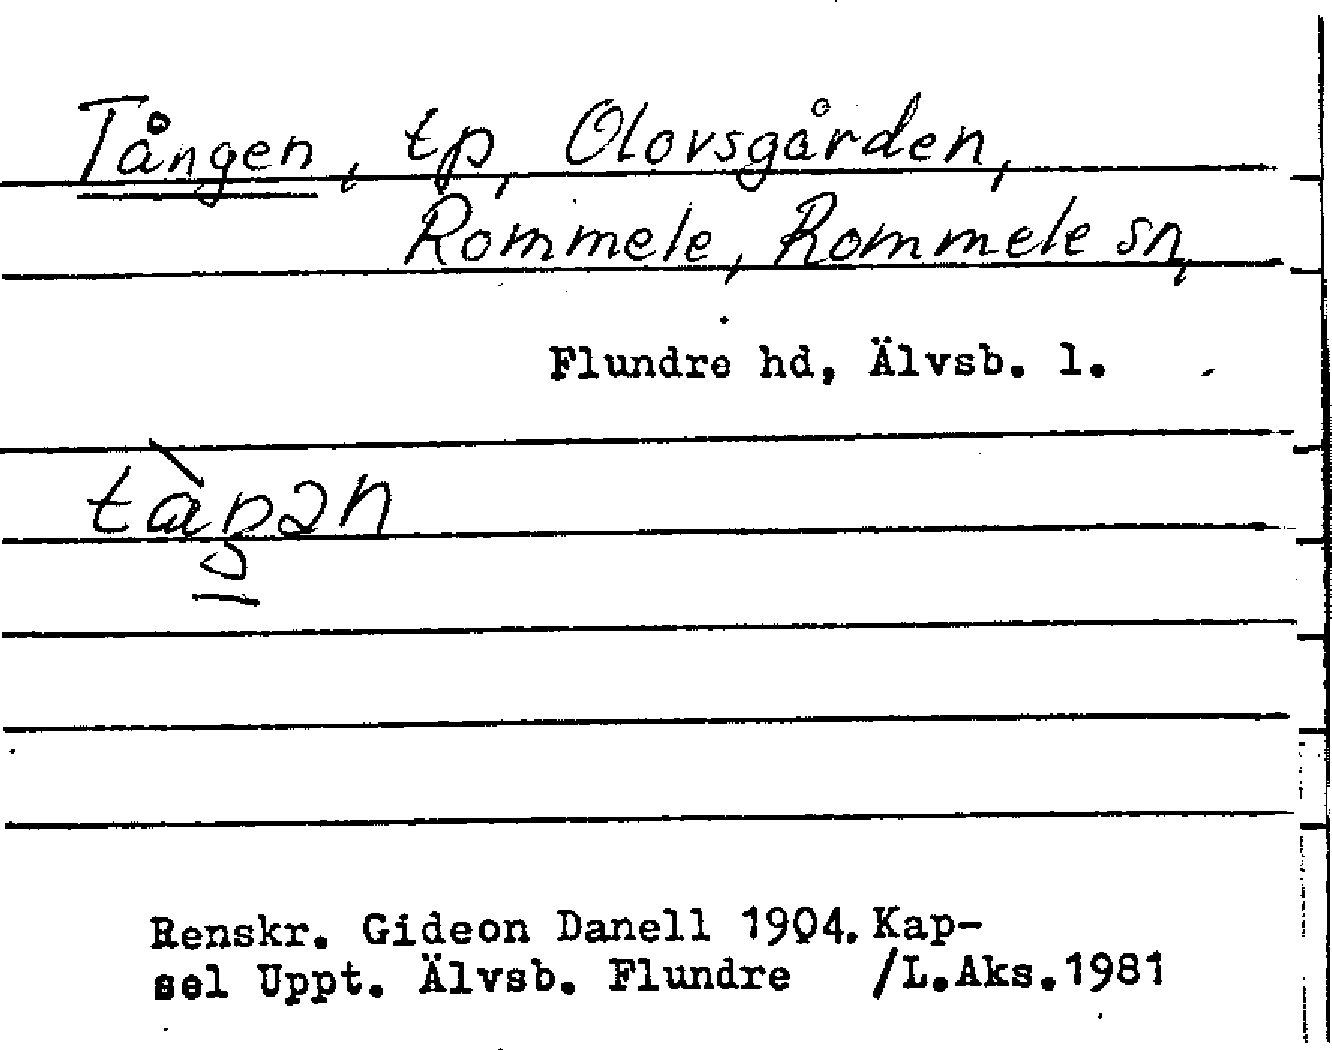 Tången, tp, Olovsgården,
Rommele, Rommele sn,
Flundre hd, Älvsb. l.
Renskr. Gideon Danell 1904. Kap-
sel Uppt. Älvsb. Flundre /L.Aks.1981